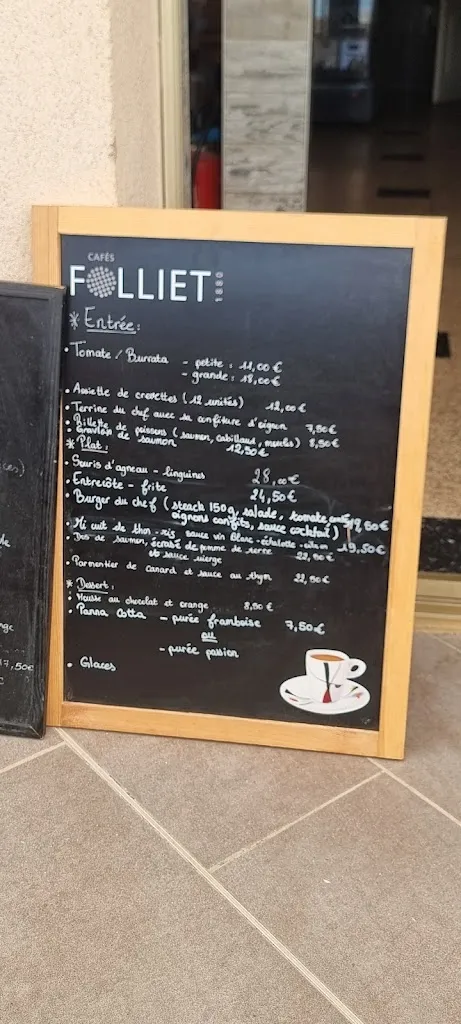 CAFÉS
FOLLIET
1880
* Entrée:
• Tomate / Burrata - petite : 11,00 €
- grande : 18,00 €
• Assiette de crevettes (12 unités) 12,00 €
• Terrine du chef avec sa confiture d'oignon 7,50 €
• Rillette de poissons (saumon, cabillaud, moules) 8,50 €
• Gravlax de saumon 12,50 €
* Plat:
• Souris d'agneau - linguines 28,00 €
• Entrecôte - frite 24,50 €
• Burger du chef (steack 150g, salade, tomate
oignons confits, sauce cocktail) 17,50 €
• Mi cuit de thon - riz, sauce vin blanc - échalotte - citron 19,50 €
• Dos de saumon, écrasé de pomme de terre
et sauce vierge 22,50 €
• Parmentier de canard et sauce au thym 22,50 €
* Dessert:
• Mousse au chocolat et orange 8,50 €
• Panna Cotta - purée framboise 7,50 €
ou
- purée passion
• Glaces
nge
17,50€
€